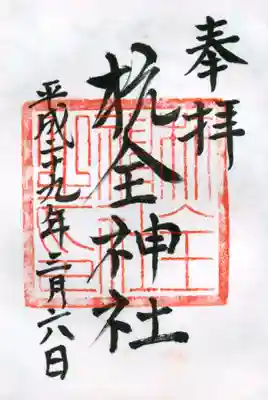 奉拝
杭全神社
平成二十九年二月六日